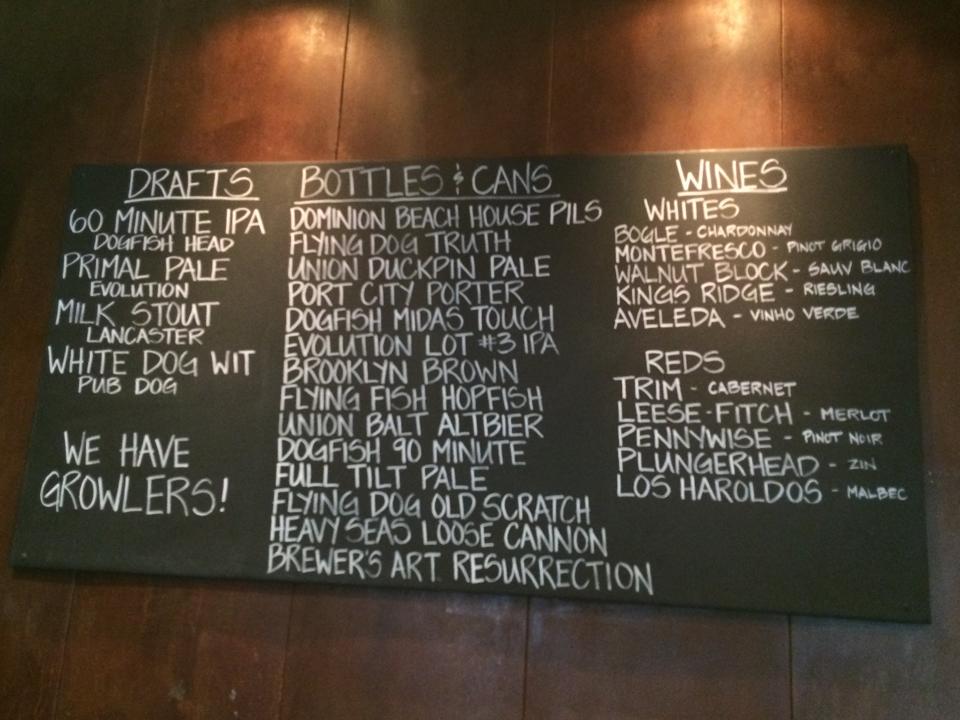 DRAFTS
60 MINUTE IPA
DOGFISH HEAD
PRIMAL PALE
EVOLUTION
MILK STOUT
LANCASTER
WHITE DOG WIT
PUB DOG
WE HAVE
GROWLERS!
BOTTLES & CANS
DOMINION BEACH HOUSE PILS
FLYING DOG TRUTH
UNION DUCKPIN PALE
PORT CITY PORTER
DOGFISH MIDAS TOUCH
EVOLUTION LOT #3 IPA
BROOKLYN BROWN
FLYING FISH HOPFISH
UNION BALT ALTBIER
DOGFISH 90 MINUTE
FULL TILT PALE
FLYING DOG OLD SCRATCH
HEAVY SEAS LOOSE CANNON
BREWER'S ART RESURRECTION
WINES
WHITES
BOGLE - CHARDONNAY
MONTEFRESCO - PINOT GRIGIO
WALNUT BLOCK - SAUV BLANC
KINGS RIDGE - RIESLING
AVELEDA - VINHO VERDE
REDS
TRIM - CABERNET
LEESE-FITCH - MERLOT
PENNYWISE - PINOT NOIR
PLUNGERHEAD - ZIN
LOS HAROLDOS - MALBEC